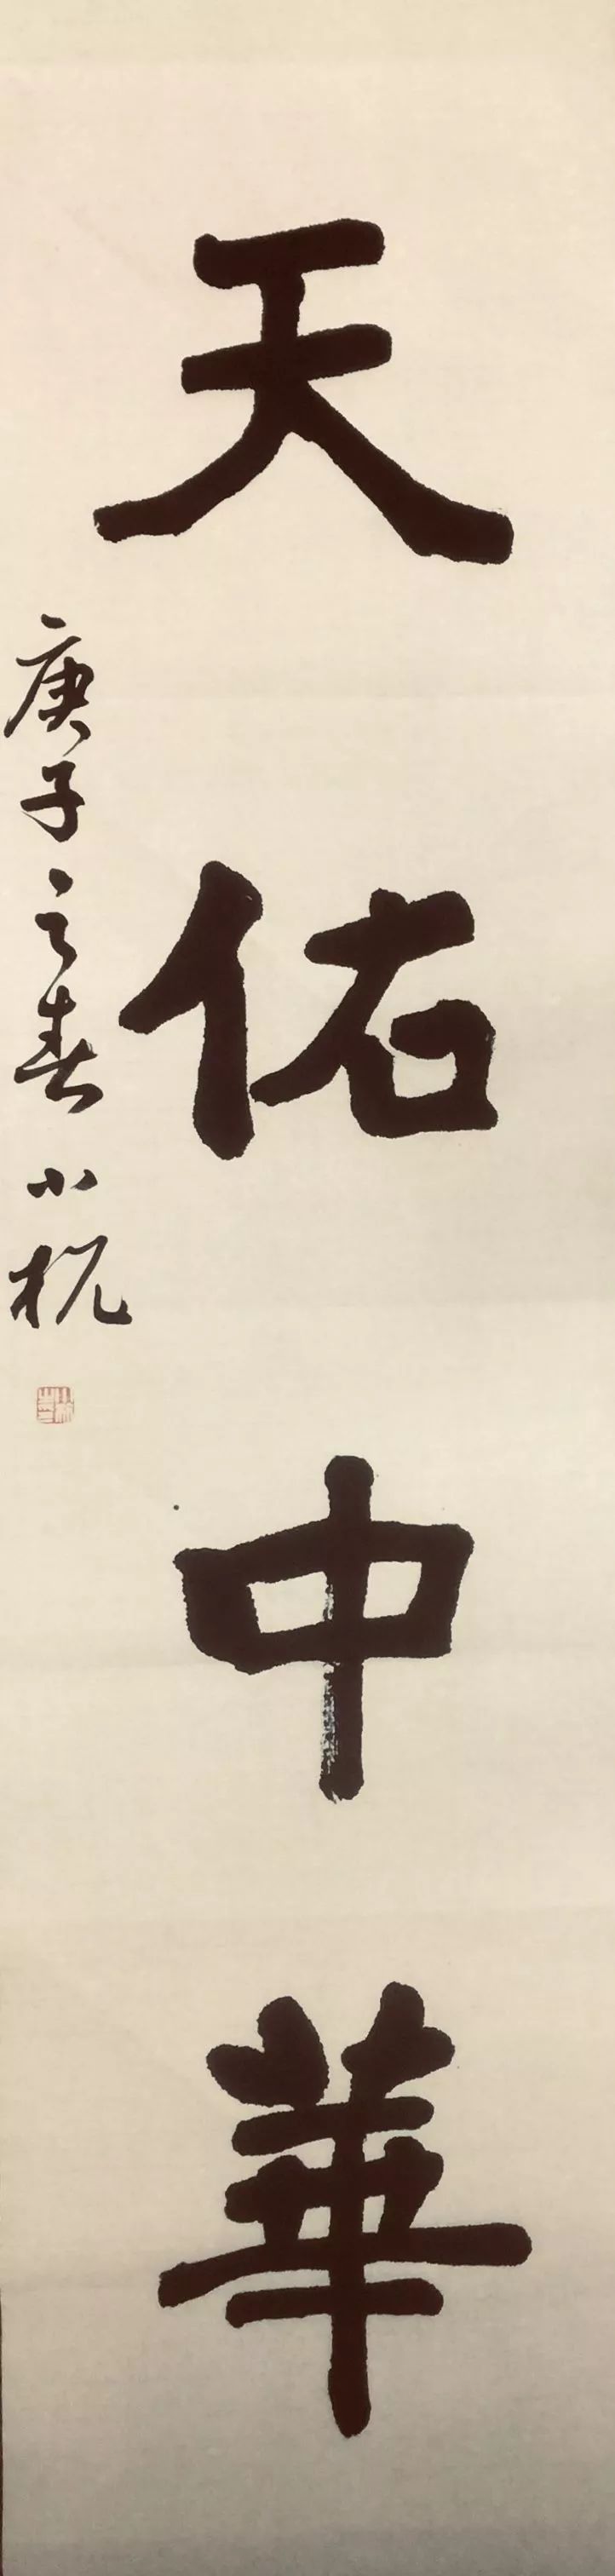 天佑中華
庚子之春 小杭